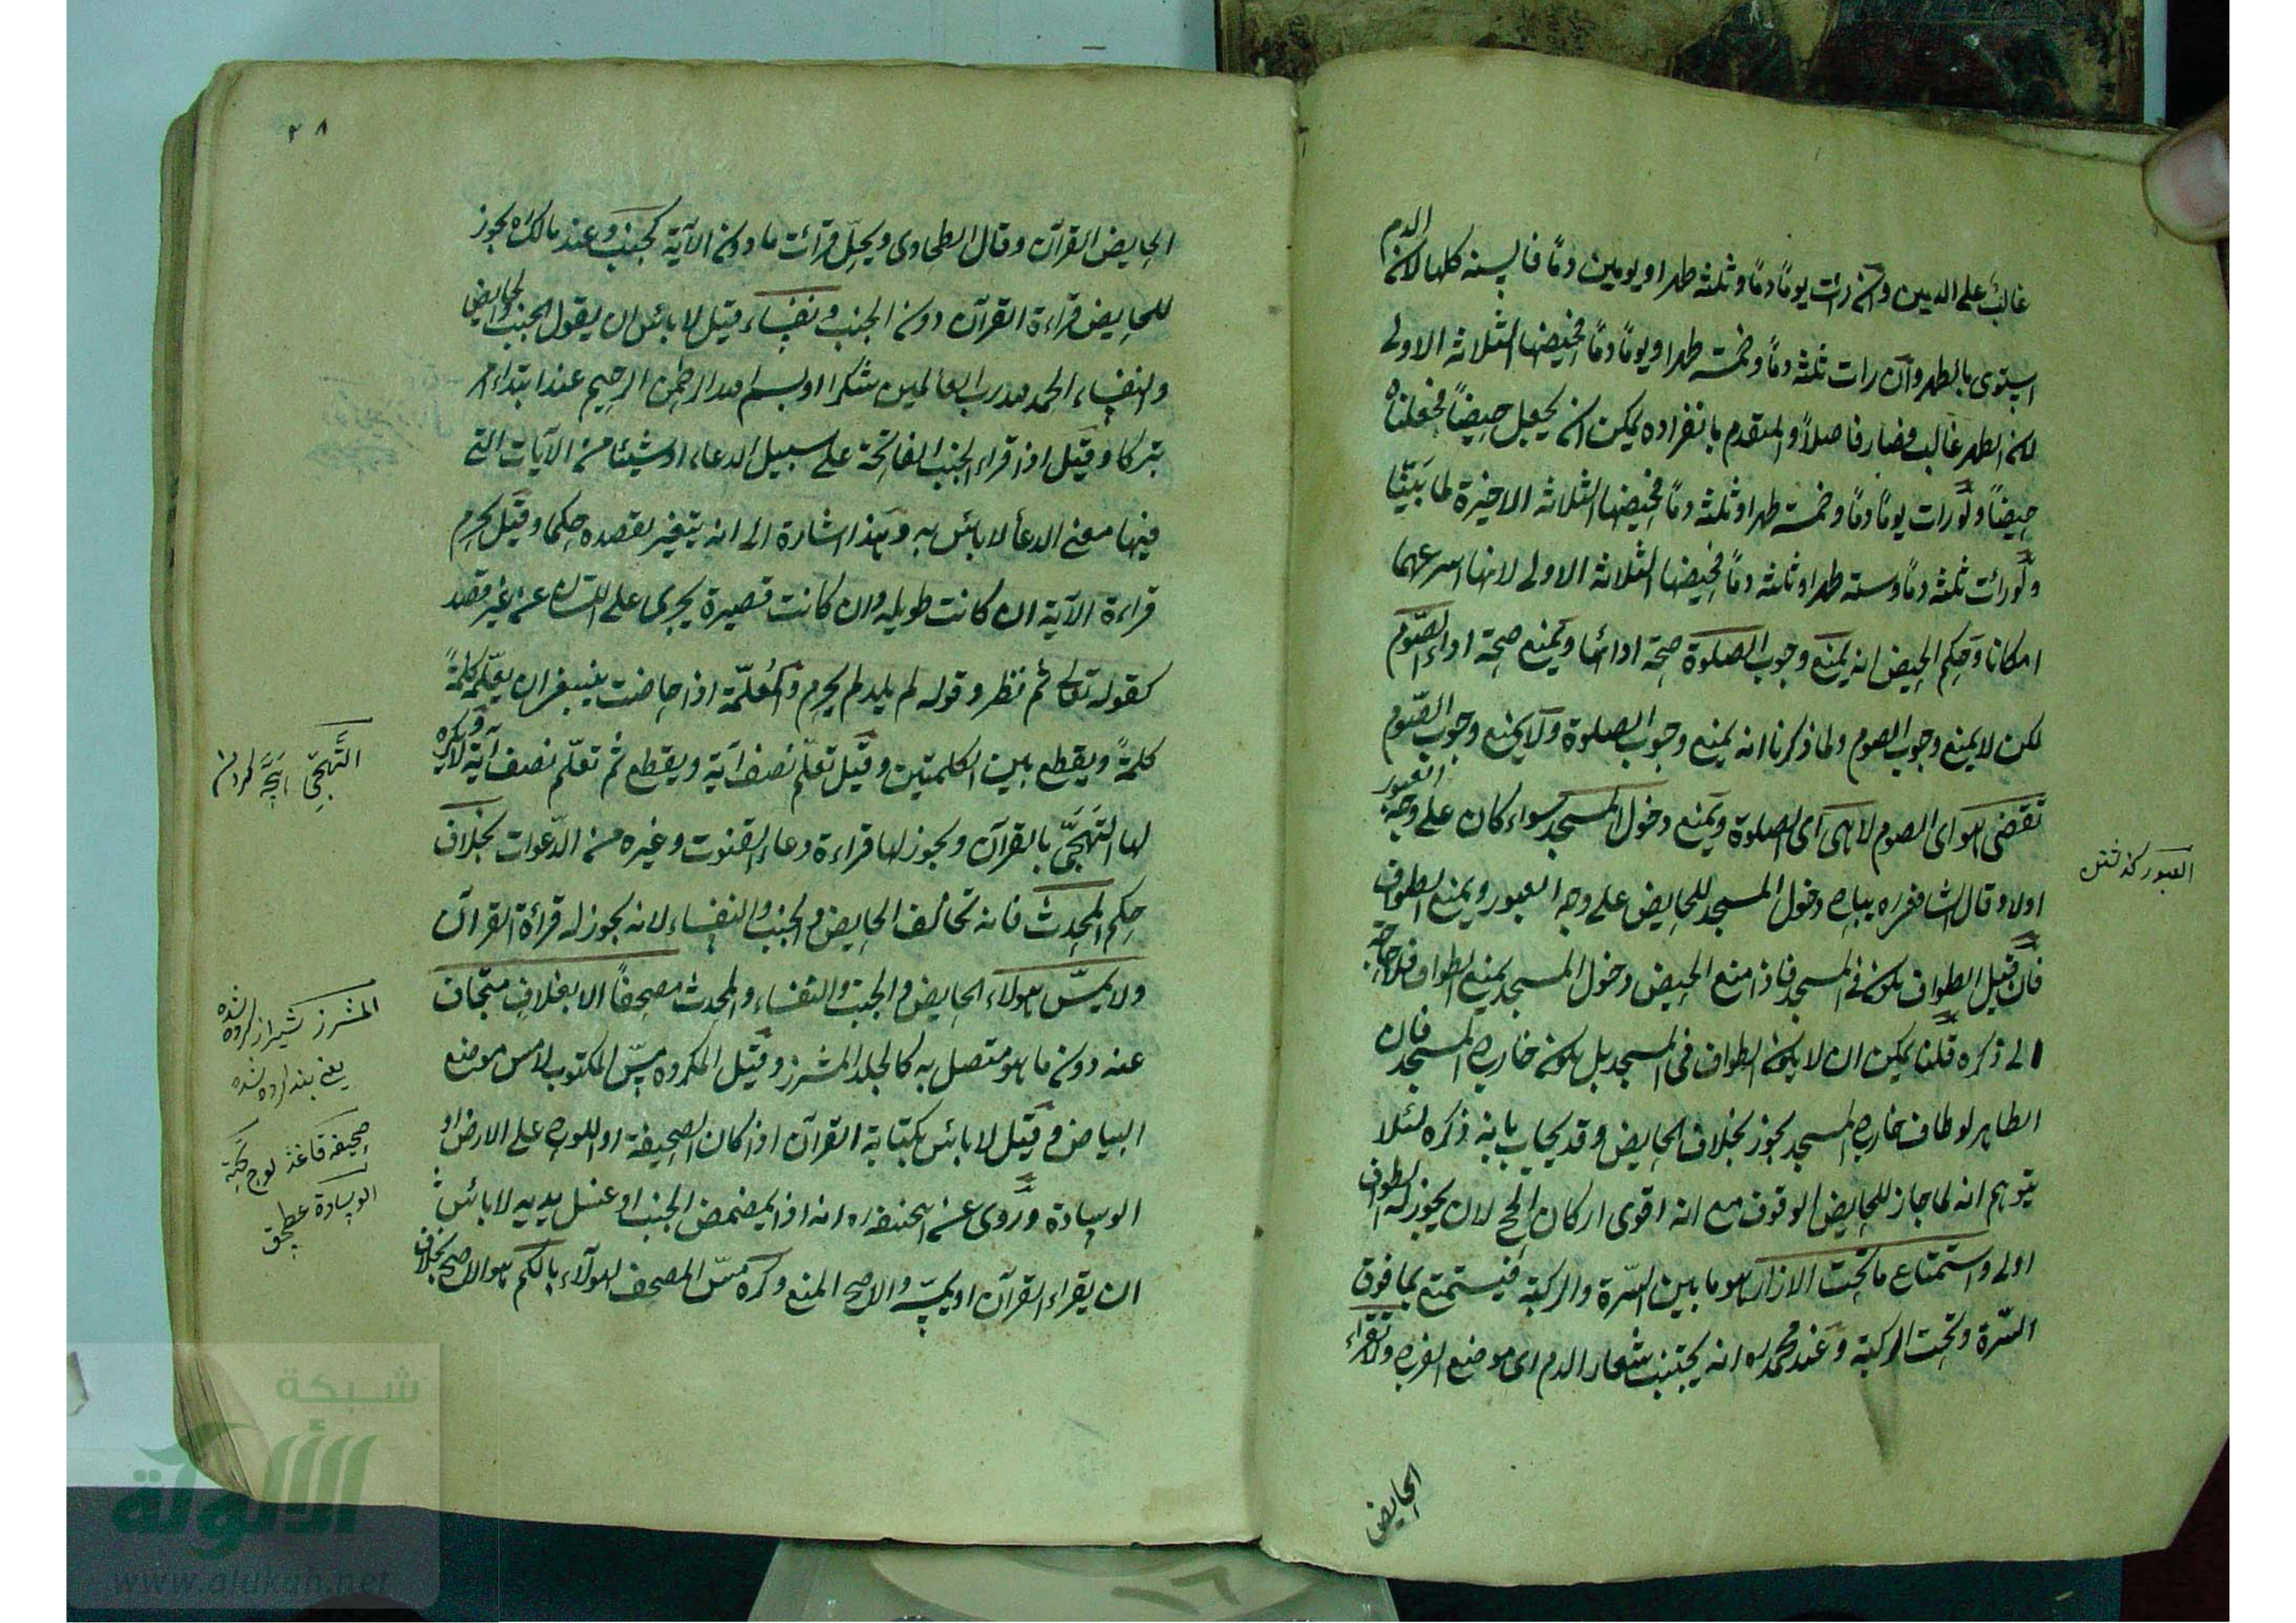 غالب على الدمين وان رات يوما دما وثلثه طهرا ويومين دما فالسته كلها لان الدم
استوى بالطهر وان رات ثلثه دما وخمسة طهرا ويوما دما فحيضها الثلاثة الاولى
لان الطهر غالب فصار فاصلا والمتقدم بانفراده يمكن ان يجعل حيضا فجعلناه
حيضا ولو رات يوما دما وخمسة طهرا وثلثه دما فحيضها الثلاثة الاخيرة لما بينا
ولو رات ثلثه دما وسته طهرا وثلثه دما فحيضها الثلاثة الاولى لانها اسرعهما
امكانا وحكم الحيض انه يمنع وجوب الصلوة صحة ادائها ويمنع صحة اداء الصوم
لكن لا يمنع وجوب الصوم ولما ذكرنا انه يمنع وجوب الصلوة ولا يمنع وجوب الصوم
تقضى هو اى الصوم لا هى اى الصلوة ويمنع دخول المسجد سواء كان على وجه العبور
اولا وقال الشافعى ره يباح دخول المسجد للحايض على وجه العبور ويمنع الطواف
فان قيل الطواف يكون فى المسجد فاذا منع الحيض دخول المسجد يمنع الطواف فلا حاجة
الى ذكره قلنا يمكن ان لا يكون الطواف فى المسجد بل يكون خارج المسجد فان
الطاهر لو طاف خارج المسجد يجوز بخلاف الحايض وقد يجاب بانه ذكره لئلا
يتوهم انه لما جاز للحايض الوقوف مع انه اقوى اركان الحج لان يجوز له الطواف
اولى واستمتاع ما تحت الازار هو ما بين السرة والركبة فيستمتع بما فوق
السرة وتحت الركبة وعند محمد ره انه يجتنب شعار الدم اى موضع الفرج ولا تقراء
الحايض
العبور كذشتن
٢٨
الحايض القران وقال الطحاوى ويحل قرائت ما دون الاية كجنب وعند مالك ره يجوز
للحايض قراءة القران دون الجنب ونفساء قيل لا بائس ان يقول الجنب والحايض
والنفساء الحمد لله رب العالمين شكرا او بسم الله الرحمن الرحيم عند ابتداء امر
تبركا وقيل اذا قراء الجنب الفاتحة على سبيل الدعاء او شيئا من الآيات التى
فيها معنى الدعا لا بائس به وهذا اشارة الى انه يتغير بقصده حكما وقيل يحرم
قراءة الآية ان كانت طويله وان كانت قصيرة يجرى على اللسان عن غير قصد
كقوله تعالى ثم نظر وقوله لم يلد لم يحرم والمعلمة اذا حاضت ينبغى ان يعلم كلمة
كلمة ويقطع بين الكلمتين وقيل تعلم نصف اية ويقطع ثم تعلم نصف اية ولا يكره
لها التهجى بالقرآن ويجوز لها قراءة دعاء القنوت وغيره من الدعوات بخلاف
حكم المحدث فانه تخالف الحايض والجنب والنفساء لانه يجوز له قرائة القرآن
ولا يمس هولاء الحايض والجنب والنفساء والمحدث مصحفا الا بغلاف متجاف
عنه دون ما هو متصل به كالجلد المشرز وقيل المكروه مس المكتوب لا مس موضع
البياض وقيل لا بائس بكتابة القرآن اذا كان الصحيفة او اللوح على الارض او
الوسادة وروى عن ابيحنيفه ره انه اذا يمضمض الجنب او غسل يديه لا بائس
ان يقراء القرآن او يمسه والاصح المنع وكره مس المصحف لهولاء بالكم هو الاصح بخلاف
التهجى كردن
المشرز شيرازه كرده شده
يعنى
صحيفه كاغذ لوح تخته
الوسادة
شبكة
الألوكة
www.alukah.net